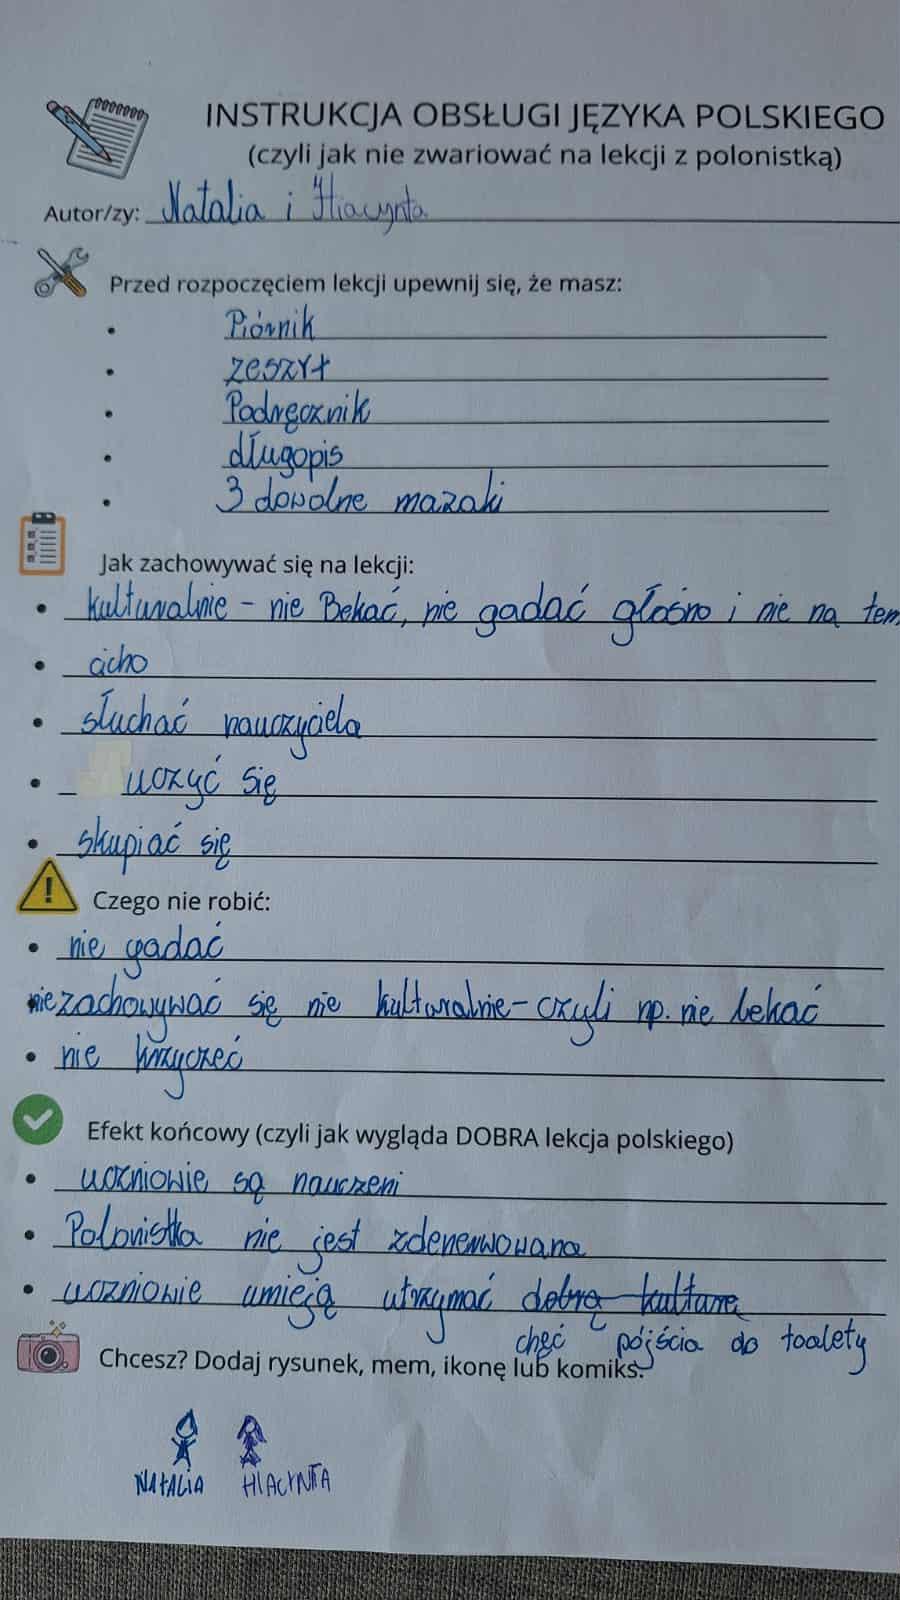 INSTRUKCJA OBSŁUGI JĘZYKA POLSKIEGO
(czyli jak nie zwariować na lekcji z polonistką)
Autor/zy: Natalia i Hiacynta
Przed rozpoczęciem lekcji upewnij się, że masz:
• Piórnik
• zeszyt
• Podręcznik
• długopis
• 3 dowolne mazaki
Jak zachowywać się na lekcji:
• kulturalnie - nie Bekać, nie gadać głośno i nie na tem
• cicho
• słuchać nauczyciela
• uczyć się
• skupiać się
Czego nie robić:
• nie gadać
• nie zachowywać się nie kulturalnie - czyli np. nie bekać
• nie krzyczeć
Efekt końcowy (czyli jak wygląda DOBRA lekcja polskiego)
• uczniowie są nauczeni
• Polonistka nie jest zdenerwowana
• uczniowie umieją utrzymać dobrą kulturę
chęć pójścia do toalety
Chcesz? Dodaj rysunek, mem, ikonę lub komiks.
NATALIA HIACYNTA